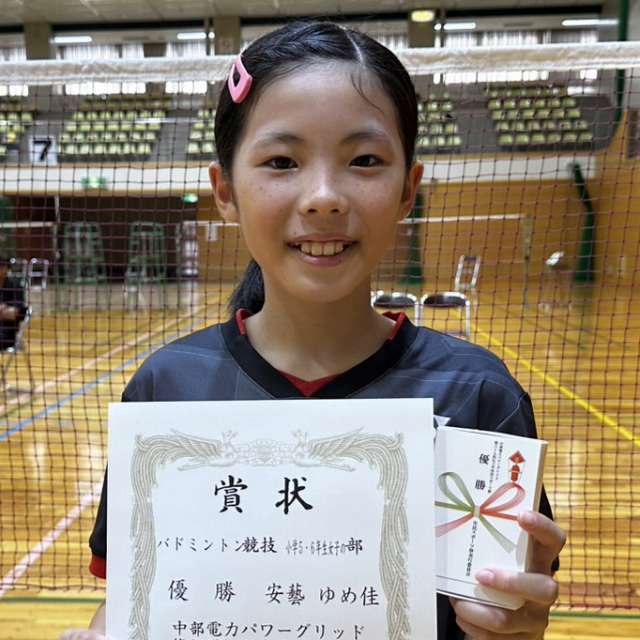 7
賞状
バドミントン競技 小学5・6年生女子の部
優勝 安藝 ゆめ佳
中部電力パワーグリッド
優勝